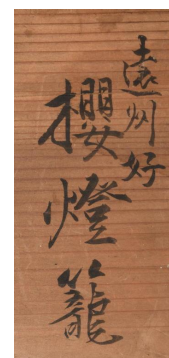 遠州好
櫻燈籠